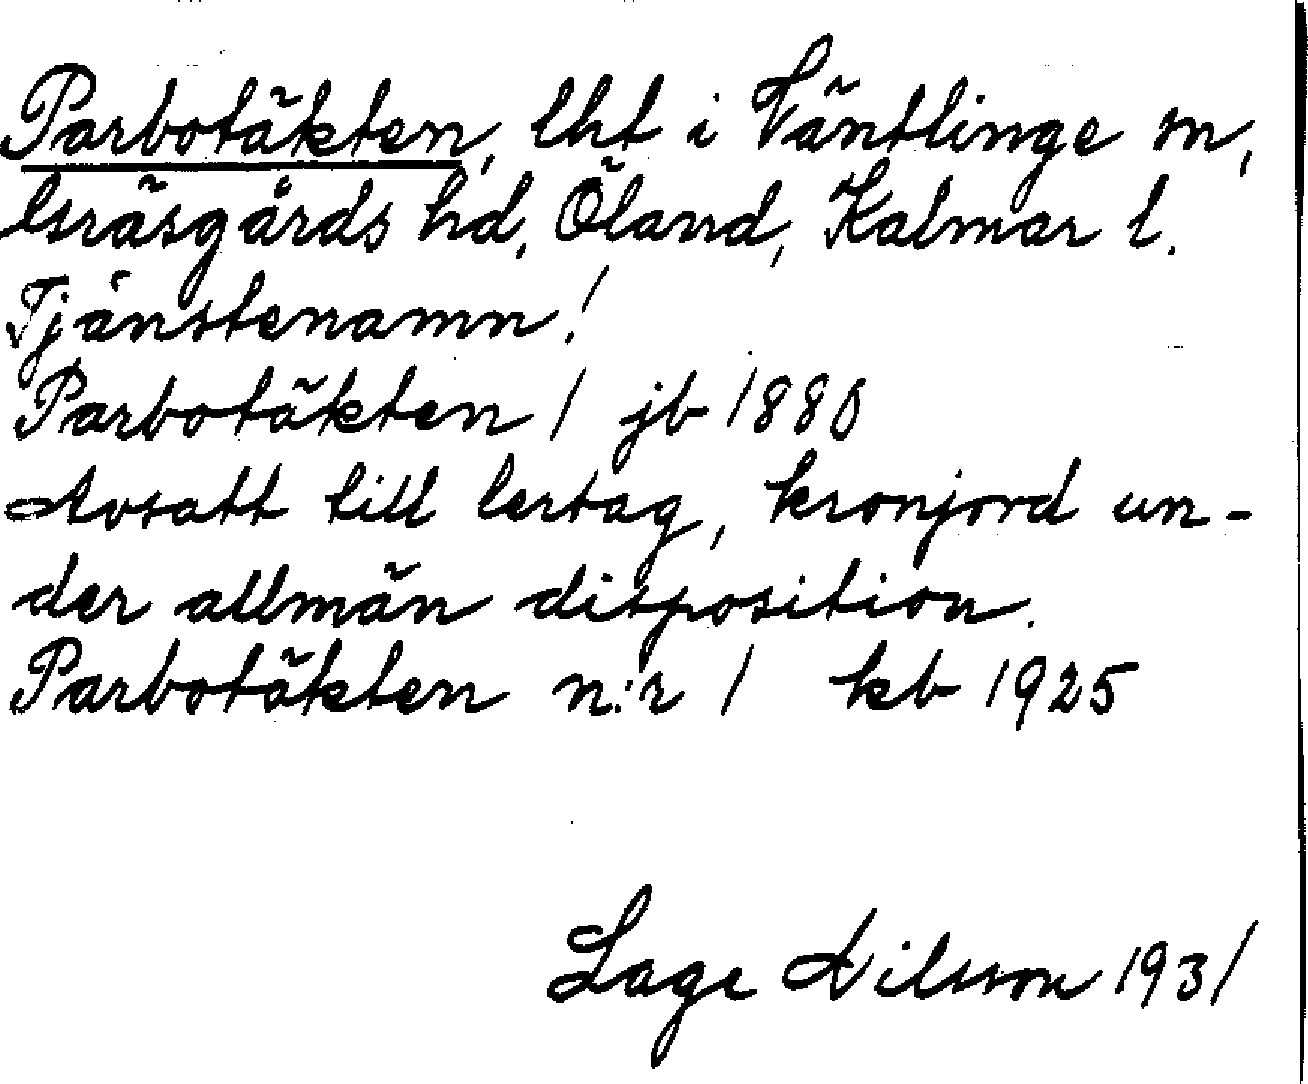 Parbotäkten, lht i Väntlinge sn,
Gräsgårds hd, Öland, Kalmar l.
Tjänstenamn!
Parbotäkten 1 jb 1880
Avsatt till lertag, kronjord un-
der allmän disposition.
Parbotäkten n:r 1 kb 1925
Lage Nilsson 1931